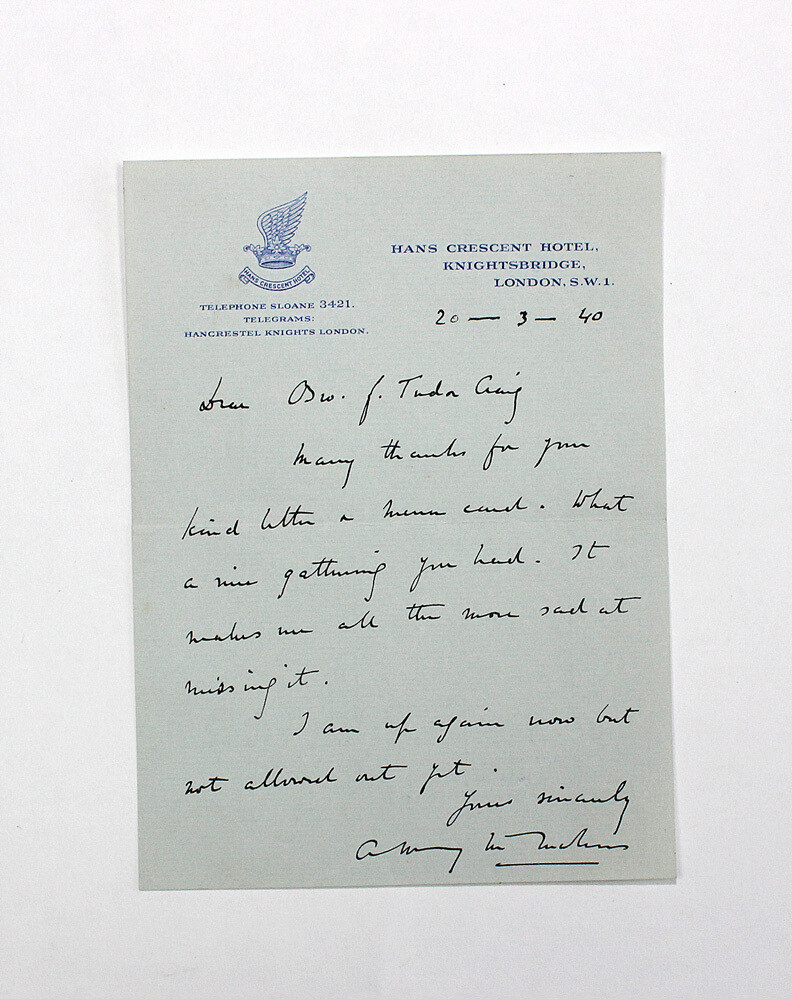 HANS CRESCENT HOTEL
TELEPHONE SLOANE 3421.
TELEGRAMS:
HANCRESTEL KNIGHTS LONDON.
HANS CRESCENT HOTEL,
KNIGHTSBRIDGE,
LONDON, S.W.1.
20 — 3 — 40
Dear Bro. J. Tudor Craig
Many thanks for your
kind letter & menu card. What
a nice gathering you had. It
makes me all the more sad at
missing it.
I am up again now but
not allowed out yet.
Yours sincerely